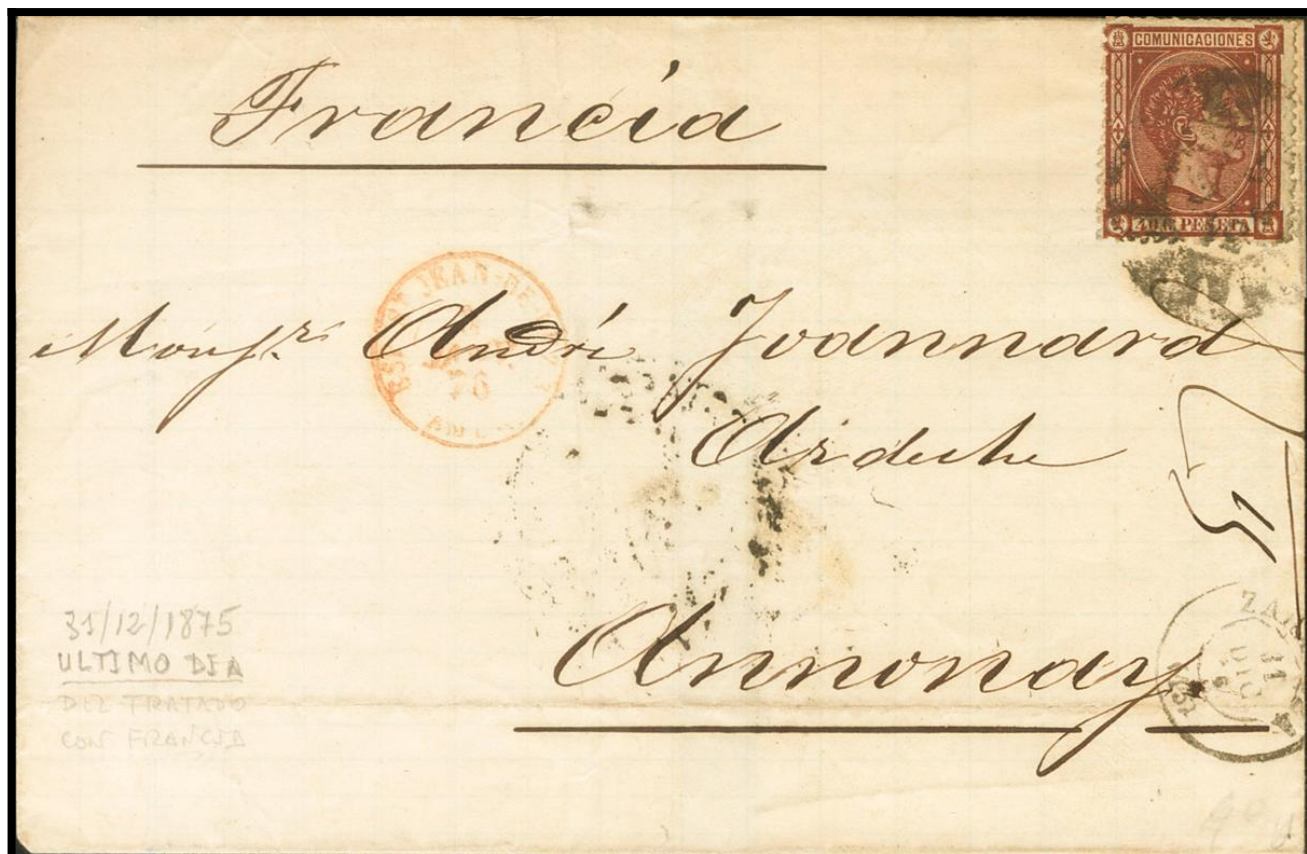 COMUNICACIONES
40 C. PESETA
Francia
Monsr. André Joannard
Ardeche
Annonay.
JEAN-DE
76
31/12/1875
ULTIMO DIA
DEL TRATADO
CON FRANCIA
31
DIC